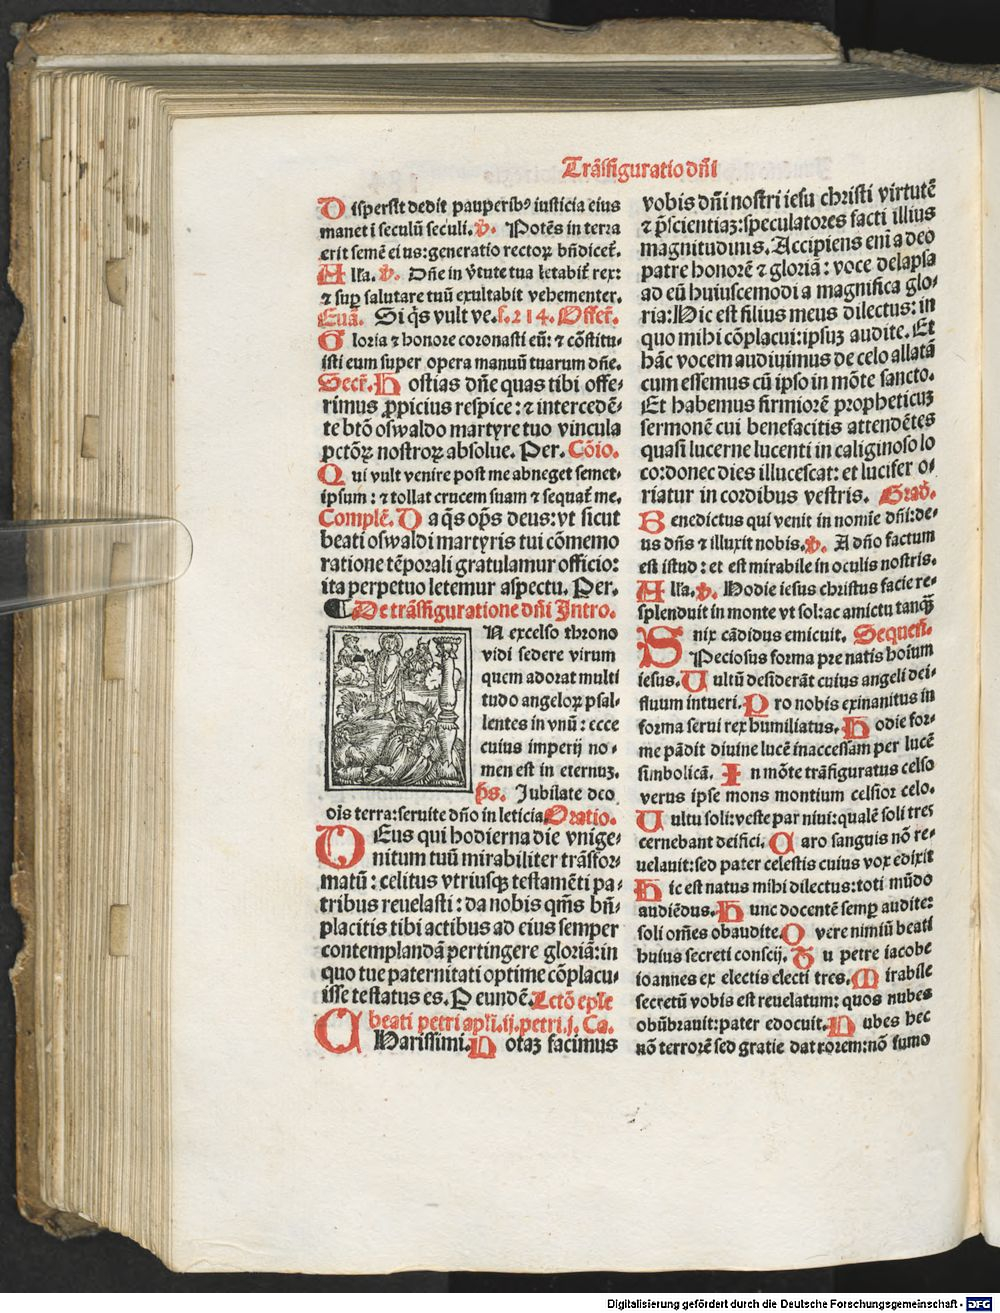 Trãsfiguratio dñi
Dispersit dedit pauperibꝰ iusticia eius
manet ĩ seculũ seculi. ṽ. Potẽs in terra
erit semẽ eius: generatio rectoꝝ bñdicet᷑.
Alľa. ṽ. Dñe in v̓tute tua letabit᷑ rex:
⁊ suꝑ salutare tuũ exultabit vehementer.
Euã. Si q̃s vult ve. f. 214. Offer̃.
Gloria ⁊ honore coronasti eũ: ⁊ cõstitu⸗
isti eum super opera manuũ tuarum dñe.
Secr̃. Hostias dñe quas tibi offe⸗
rimus ꝓpicius respice: ⁊ intercedẽ⸗
te btõ oswaldo martyre tuo vincula
pctõꝝ nostroꝝ absolue. Per. Cõio.
Qui vult venire post me abneget semet⸗
ipsum: ⁊ tollat crucem suam ⁊ sequat᷑ me.
Complẽ. Da q̃s op̃s deus: vt sicut
beati oswaldi martyris tui cõmemo
ratione tẽporali gratulamur officio:
ita perpetuo letemur aspectu. Per.
¶ De trãsfiguratione dñi Intro.
IN excelso throno
vidi sedere virum
quem adorat multi
tudo angeloꝝ psal⸗
lentes in vnũ: ecce
cuius imperij no⸗
men est in eternuꝫ.
p̃s. Jubilate deo
oĩs terra: seruite dño in leticia. Oratio.
DEus qui hodierna die vnige⸗
nitum tuũ mirabiliter trãsfor⸗
matũ: celitus vtriusqꝫ testamẽti pa⸗
tribus reuelasti: da nobis qm̃s bñ⸗
placitis tibi actibus ad eius semper
contemplandã pertingere gloriã: in
quo tue paternitati optime cõplacu⸗
isse testatus es. Per eundẽ. Lctõ eple
beati petri apľi. ij. petri. j. Ca.
CHarissimi. Notaꝫ facimus
vobis dñi nostri iesu christi virtutẽ
⁊ p̃scientiaꝫ: speculatores facti illius
magnitudinis. Accipiens enĩ a deo
patre honorẽ ⁊ gloriã: voce delapsa
ad eũ huiuscemodi a magnifica glo⸗
ria: Hic est filius meus dilectus: in
quo mihi cõplacui: ipsuꝫ audite. Et
hãc vocem audiuimus de celo allatã
cum essemus cũ ipso in mõte sancto.
Et habemus firmiorẽ propheticuꝫ
sermonẽ cui benefacitis attendẽtes
quasi lucerne lucenti in caliginoso lo
co: donec dies illucescat: et lucifer o⸗
riatur in cordibus vestris. Grad̃.
Benedictus qui venit in nomĩe dñi: de⸗
us dñs ⁊ illuxit nobis. ṽ. A dño factum
est istud: et est mirabile in oculis nostris.
Alľa. ṽ. Hodie iesus christus facie re⸗
splenduit in monte vt sol: ac amictu tanqꝫ̃
nix cãdidus emicuit. Sequen̄.
SPeciosus forma pre natis hoĩum
iesus. Uultũ desiderãt cuius angeli dei⸗
fluum intueri. Pro nobis exinanitus in
forma serui rex humiliatus. Hodie for⸗
me pãdit diuine lucẽ inaccessam per lucẽ
simbolicã. In mõte trãfiguratus celso
verus ipse mons montium celsior celo.
Uultu soli: veste par niui: qualẽ soli tres
cernebant deifici. Caro sanguis nõ re⸗
uelauit: sed pater celestis cuius vox edixit
Hic est natus mihi dilectus: toti mũdo
audiẽdus. Hunc docentẽ semꝑ audite:
soli om̃es obaudite. O vere nimiũ beati
huius secreti conscij. Tu petre iacobe
ioannes ex electis electi tres. Mirabile
secretũ vobis est reuelatum: quos nubes
obũbrauit: pater edocuit. Nubes hec
nõ terrorẽ sed gratie dat rorem: nõ fumo
Digitalisierung gefördert durch die Deutsche Forschungsgemeinschaft - DFG